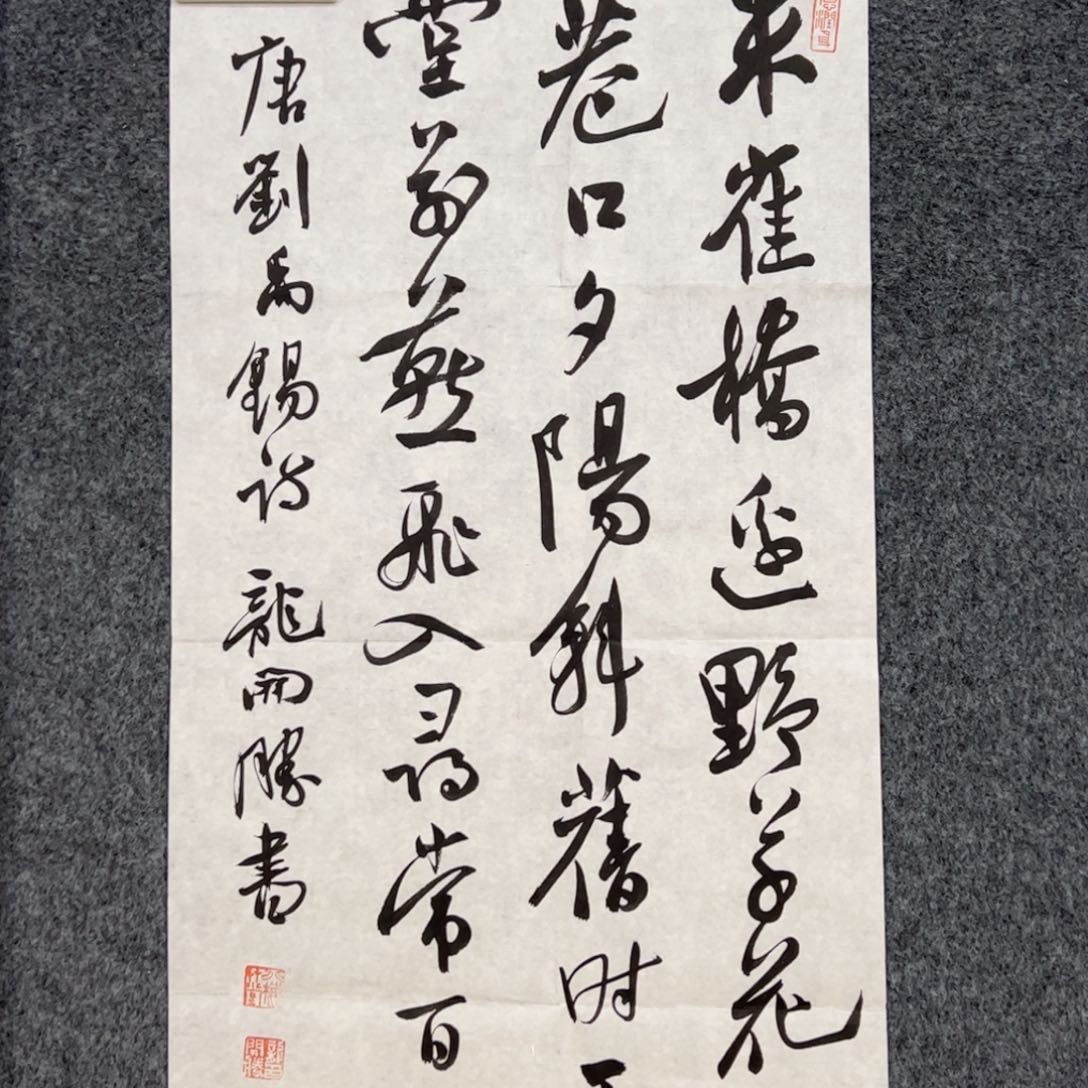 朱雀橋邊野草花
巷口夕陽斜舊時王
堂前燕飛入尋常百
唐劉禹錫詩 龍開勝書
龍開勝